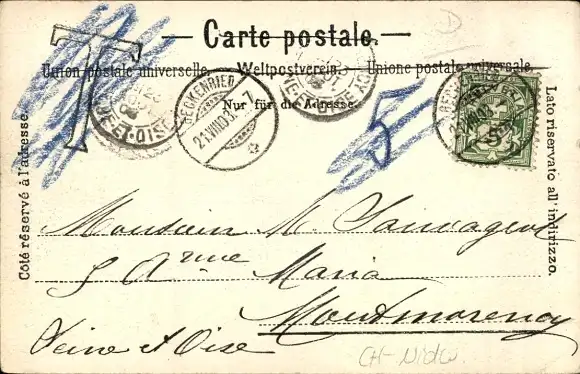 Carte postale.
Union postale universelle. Weltpostverein. Unione postale universale.
Nur für die Adresse.
Côté réservé à l'adresse.
Lato riservato all'indirizzo.
T
5
BECKENRIED
21.VIII.03. 7
ET-OISE
HELVETIA
5
Monsieur M. Sainsagent
5 Ame Maria
Montmorency
Seine et Oise
CH-